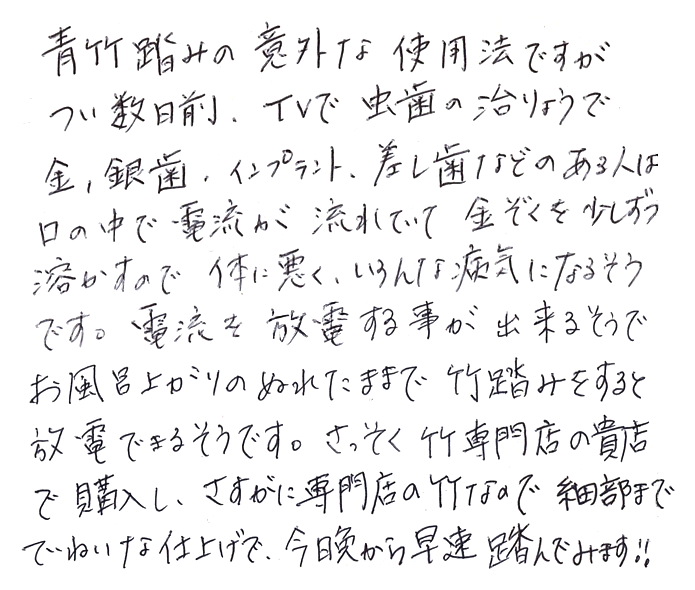 青竹踏みの意外な使用法ですが
つい数日前、TVで虫歯の治りょうで
金、銀歯、インプラント、差し歯などのある人は
口の中で電流が流れていて金ぞくを少しずつ
溶かすので体に悪く、いろんな病気になるそう
です。電流を放電する事が出来るそうで
お風呂上がりのぬれたままで竹踏みをすると
放電できるそうです。さっそく竹専門店の貴店
で購入し、さすがに専門店の竹なので細部まで
ていねいな仕上げで、今日晩から早速踏んでみます!!